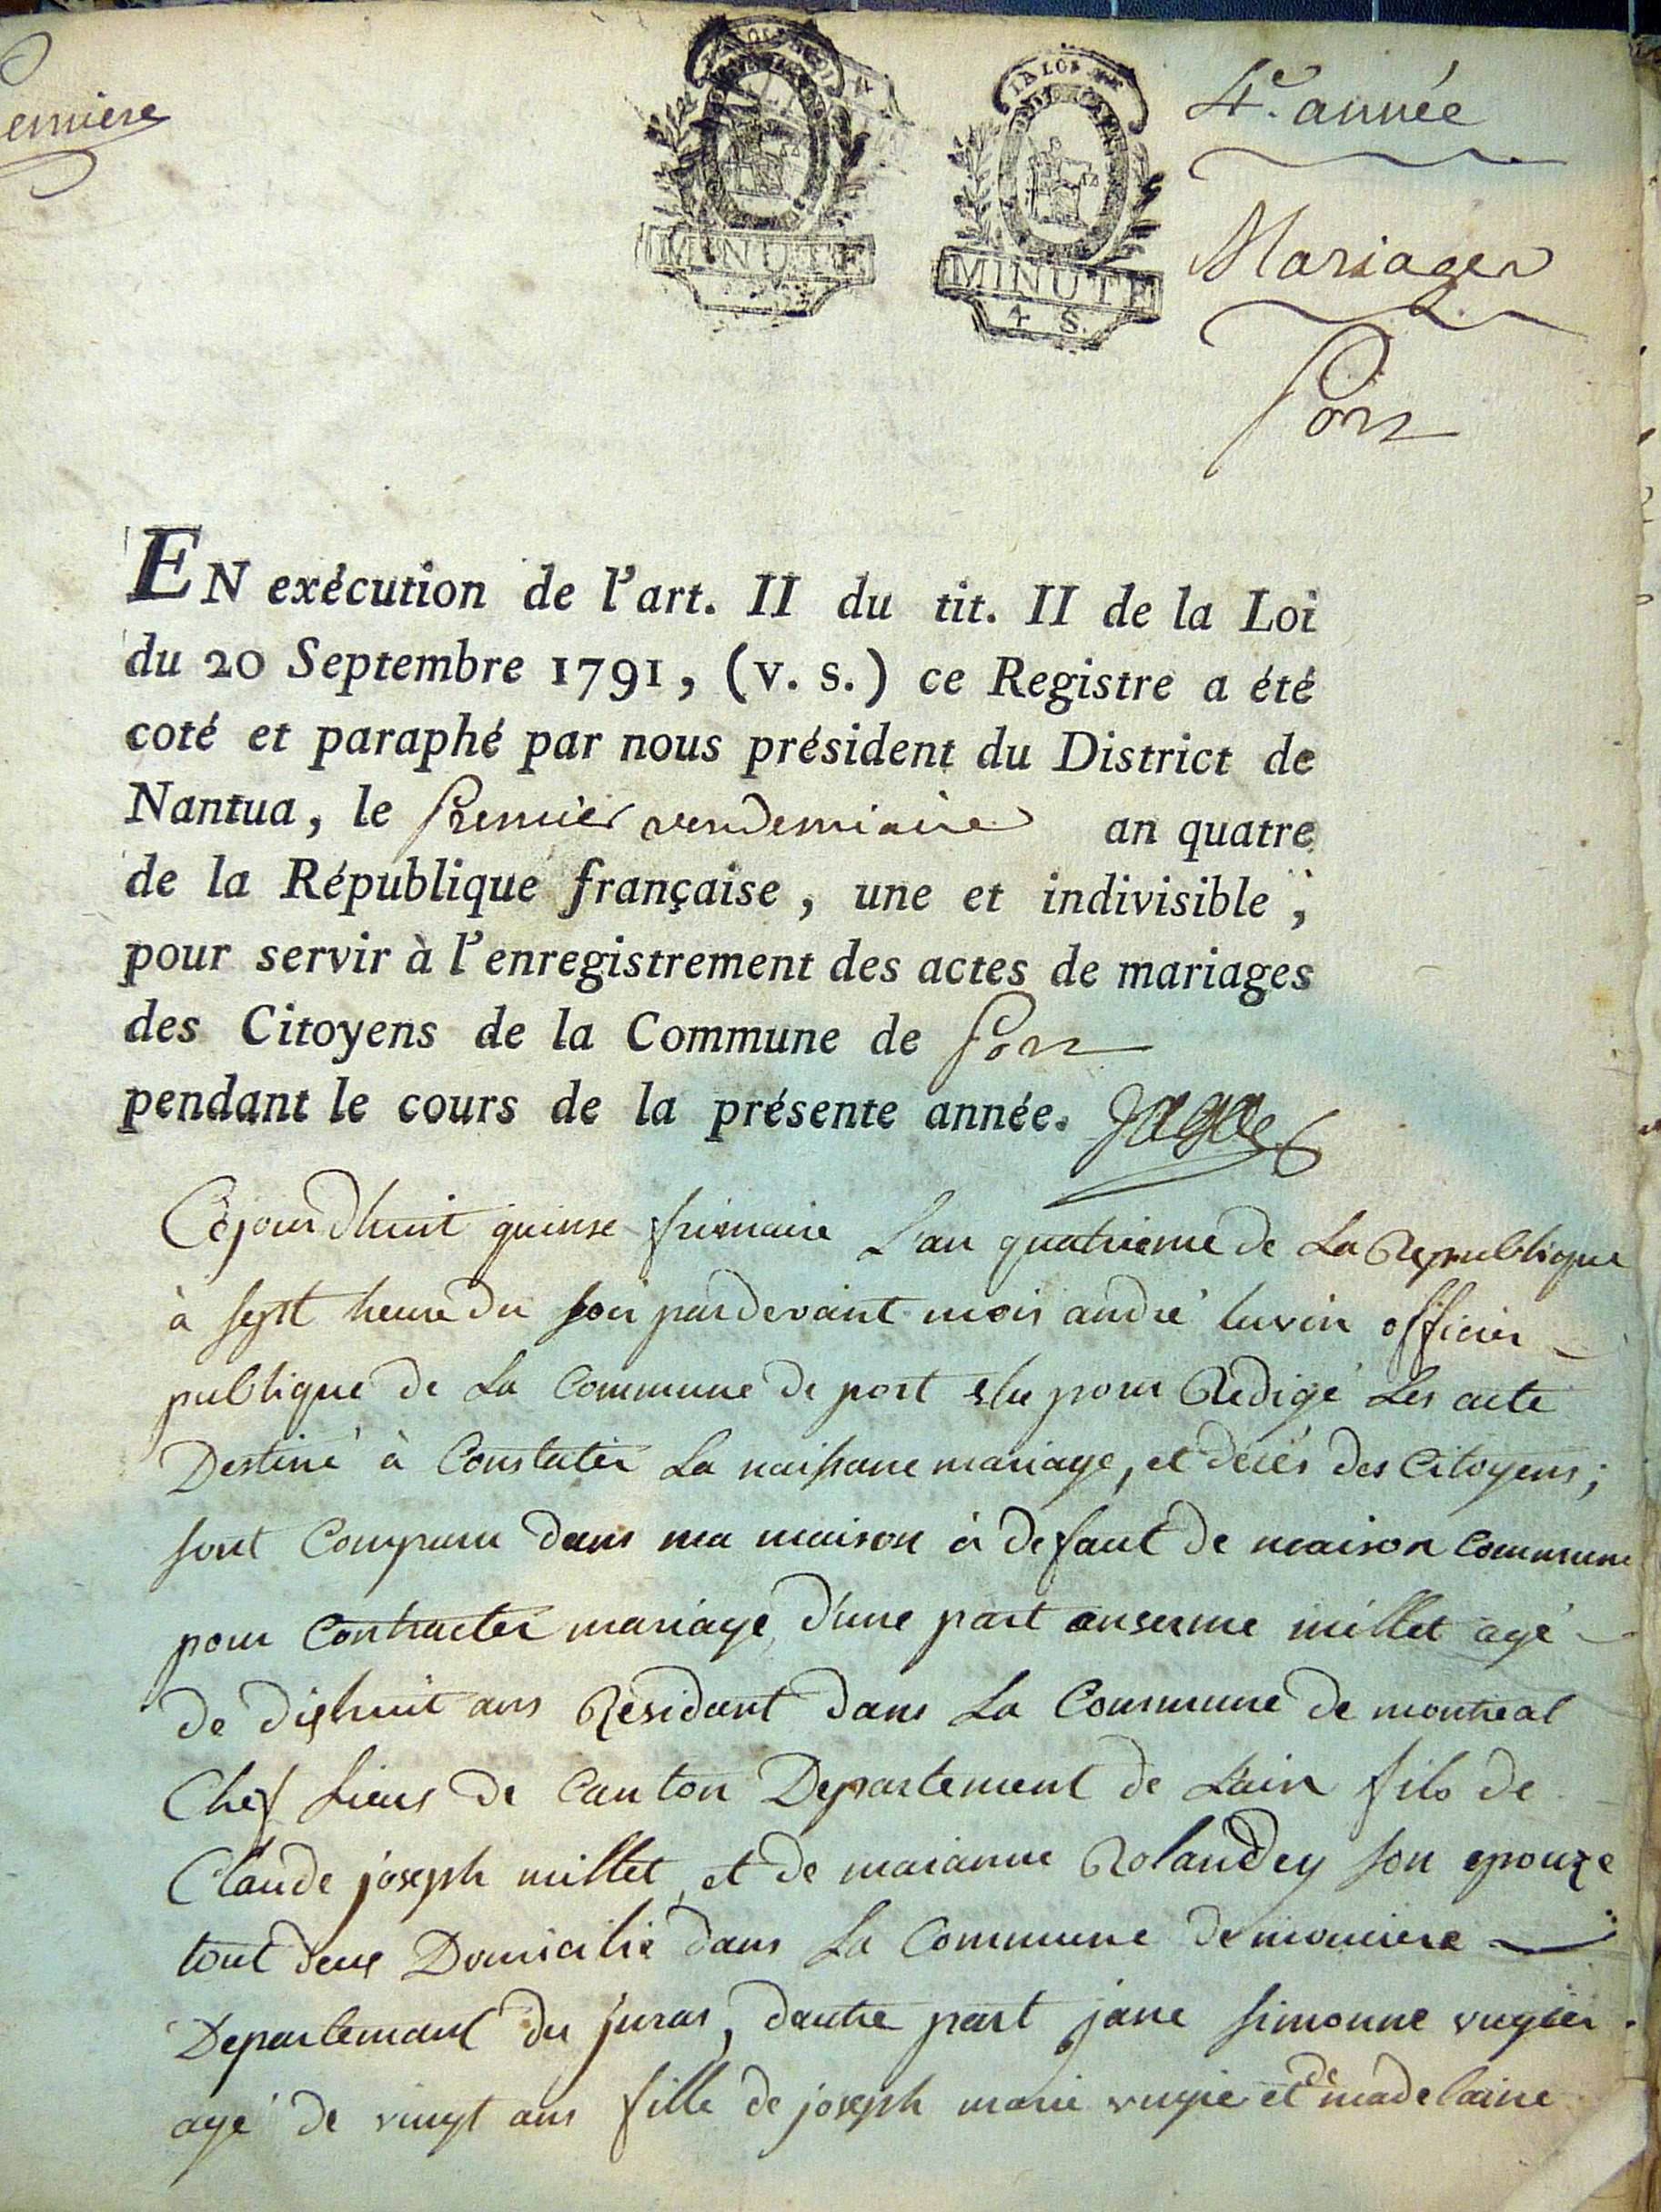 emiere
LA LOI
MINUTE
MINUTE
4 S.
4e. année
Mariages
Port
EN exécution de l'art. II du tit. II de la Loi
du 20 Septembre 1791, (v. s.) ce Registre a été
coté et paraphé par nous président du District de
Nantua, le premier vendemiaire an quatre
de la République française, une et indivisible,
pour servir à l'enregistrement des actes de mariages
des Citoyens de la Commune de Port
pendant le cours de la présente année.
Cejourdhuit quinse frimaire L'an quatrieme de La Republique
à sept heure du soir pardevant mois andré luvin officier
publique de La Commune de port elu pour Redigé Les acte
Destiné à Constater La naissance mariage, et décès des Citoyens;
sont Comparu dans ma maison à defaut de maison Commune
pour Contracter mariage, d'une part anserme millet agé
de dishuit ans Residant dans La Commune de montreal
Chef Lieus de Canton Departement de Lain fils de
Claude joseph millet, et de marianne Rolandey son epouze
tout deux Domicilié dans La Commune de
Departemant du juras, dautre part jane simonne
agé de vingt ans fille de joseph marie et de madelaine